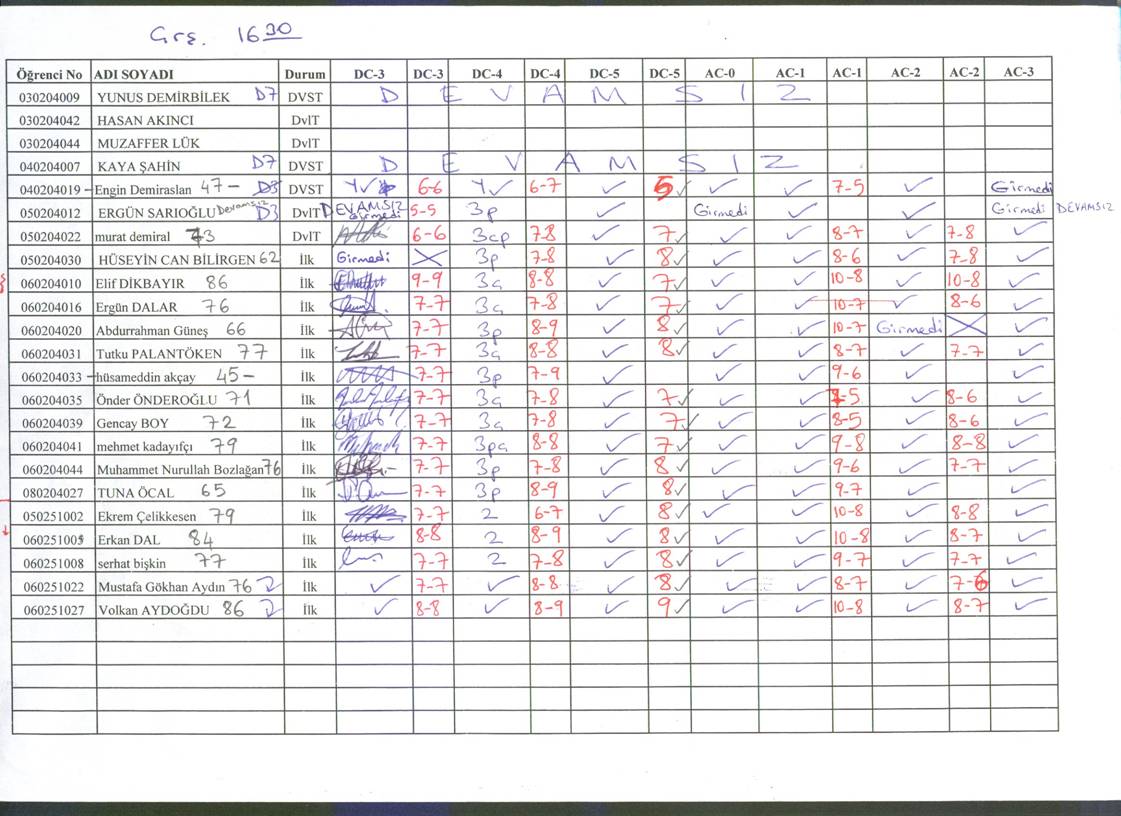 Grş. 16 30
Öğrenci No ADI SOYADI Durum DC-3 DC-3 DC-4 DC-4 DC-5 DC-5 AC-0 AC-1 AC-1 AC-2 AC-2 AC-3
030204009 YUNUS DEMİRBİLEK D7 DVST D E V A M S I Z
030204042 HASAN AKINCI DvlT
030204044 MUZAFFER LÜK DvlT
040204007 KAYA ŞAHİN D7 DVST D E V A M S I Z
040204019 - Engin Demiraslan 47 - D3 DVST 6-6 6-7 5 7-5 Girmedi
050204012 ERGÜN SARIOĞLU Devamsız D3 DvlT DEVAMSIZ Girmedi 5-5 3p Girmedi Girmedi DEVAMSIZ
050204022 murat demiral 43 DvlT 6-6 3cp 7-8 7 8-7 7-8
050204030 HÜSEYİN CAN BİLİRGEN 62 İlk Girmedi 3p 7-8 8 8-6 7-8
060204010 Elif DİKBAYIR 86 İlk 9-9 3a 8-8 7 10-8 10-8
060204016 Ergün DALAR 76 İlk 7-7 3a 7-8 7 10-7 8-6
060204020 Abdurrahman Güneş 66 İlk 7-7 3p 8-9 8 10-7 Girmedi
060204031 Tutku PALANTÖKEN 77 İlk 7-7 3a 8-8 8 8-7 7-7
060204033 - hüsameddin akçay 45 - İlk 7-7 3p 7-9 9-6
060204035 Önder ÖNDEROĞLU 71 İlk 7-7 3a 7-8 7 7-5 8-6
060204039 Gencay BOY 72 İlk 7-7 3a 7-8 7 8-5 8-6
060204041 mehmet kadayıfçı 79 İlk 7-7 3pa 8-8 7 9-8 8-8
060204044 Muhammet Nurullah Bozlağan 76 İlk 7-7 3p 7-8 8 9-6 7-7
080204027 TUNA ÖCAL 65 İlk 7-7 3p 8-9 8 9-7
050251002 Ekrem Çelikkesen 79 İlk 7-7 2 6-7 8 10-8 8-8
060251005 Erkan DAL 84 İlk 8-8 2 8-9 8 10-8 8-7
060251008 serhat bişkin 77 İlk 7-7 2 7-8 8 9-7 7-7
060251022 Mustafa Gökhan Aydın 76 İlk 7-7 8-8 8 8-7 7-6
060251027 Volkan AYDOĞDU 86 İlk 8-8 8-9 9 10-8 8-7